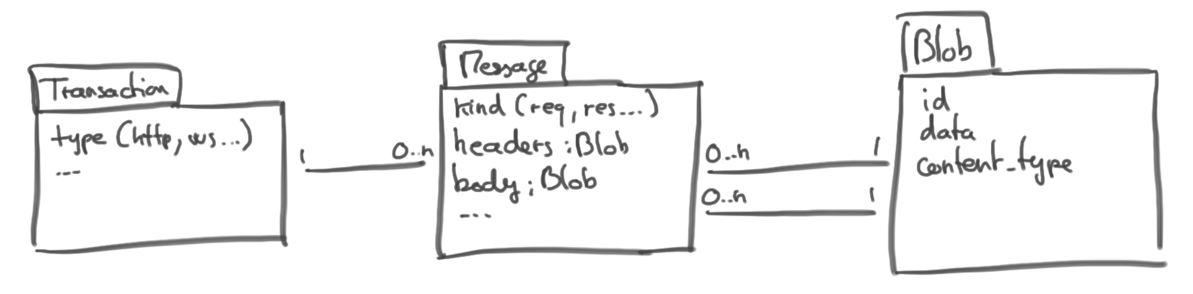 Transaction
type (http, ws...)
---
1
0..n
Message
kind (req, res...)
headers : Blob
body : Blob
---
0..n
1
0..n
1
Blob
id
data
content_type